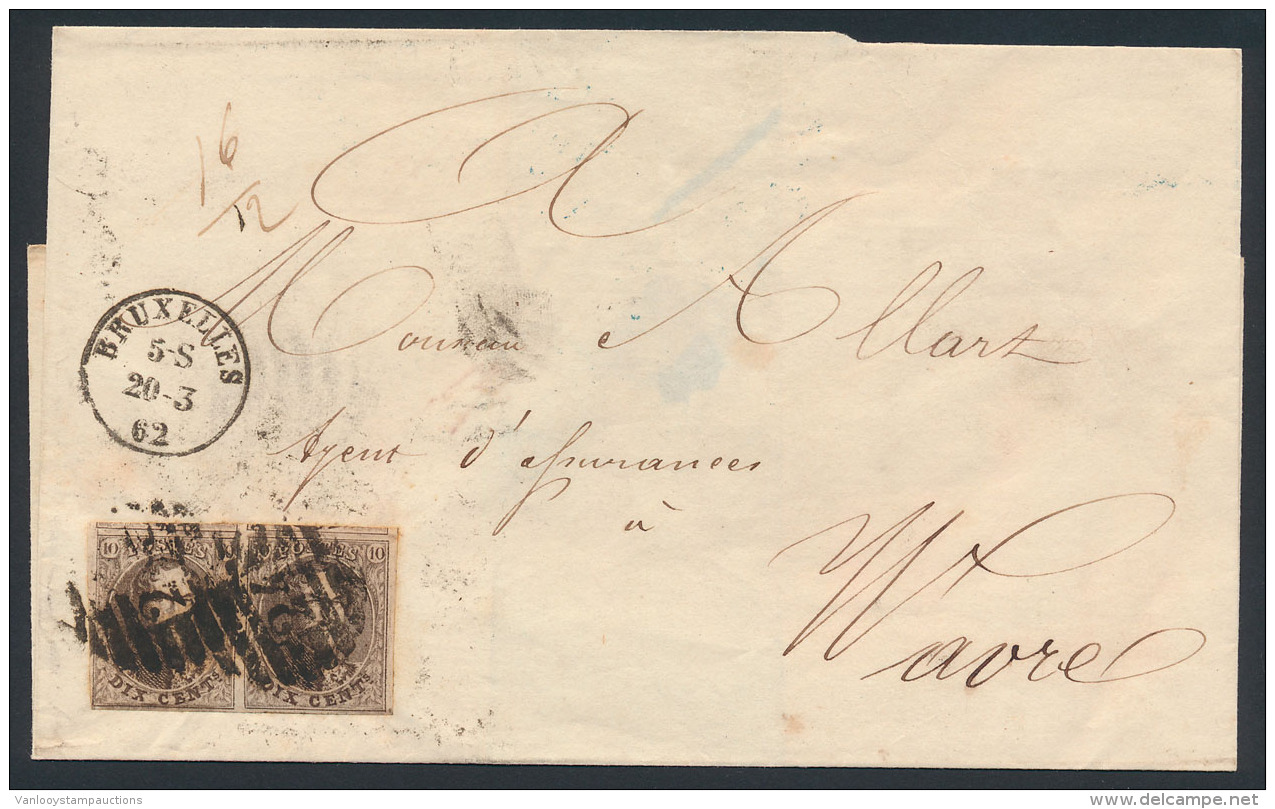 16/12
A
Monsieur Allart
Agent d'assurances
à
Wavre
BRUXELLES
5-S
20-3
62
10 POSTES 10 POSTES 10
DIX CENTs DIX CENTs
Vanlooystampauctions
delcampe.net